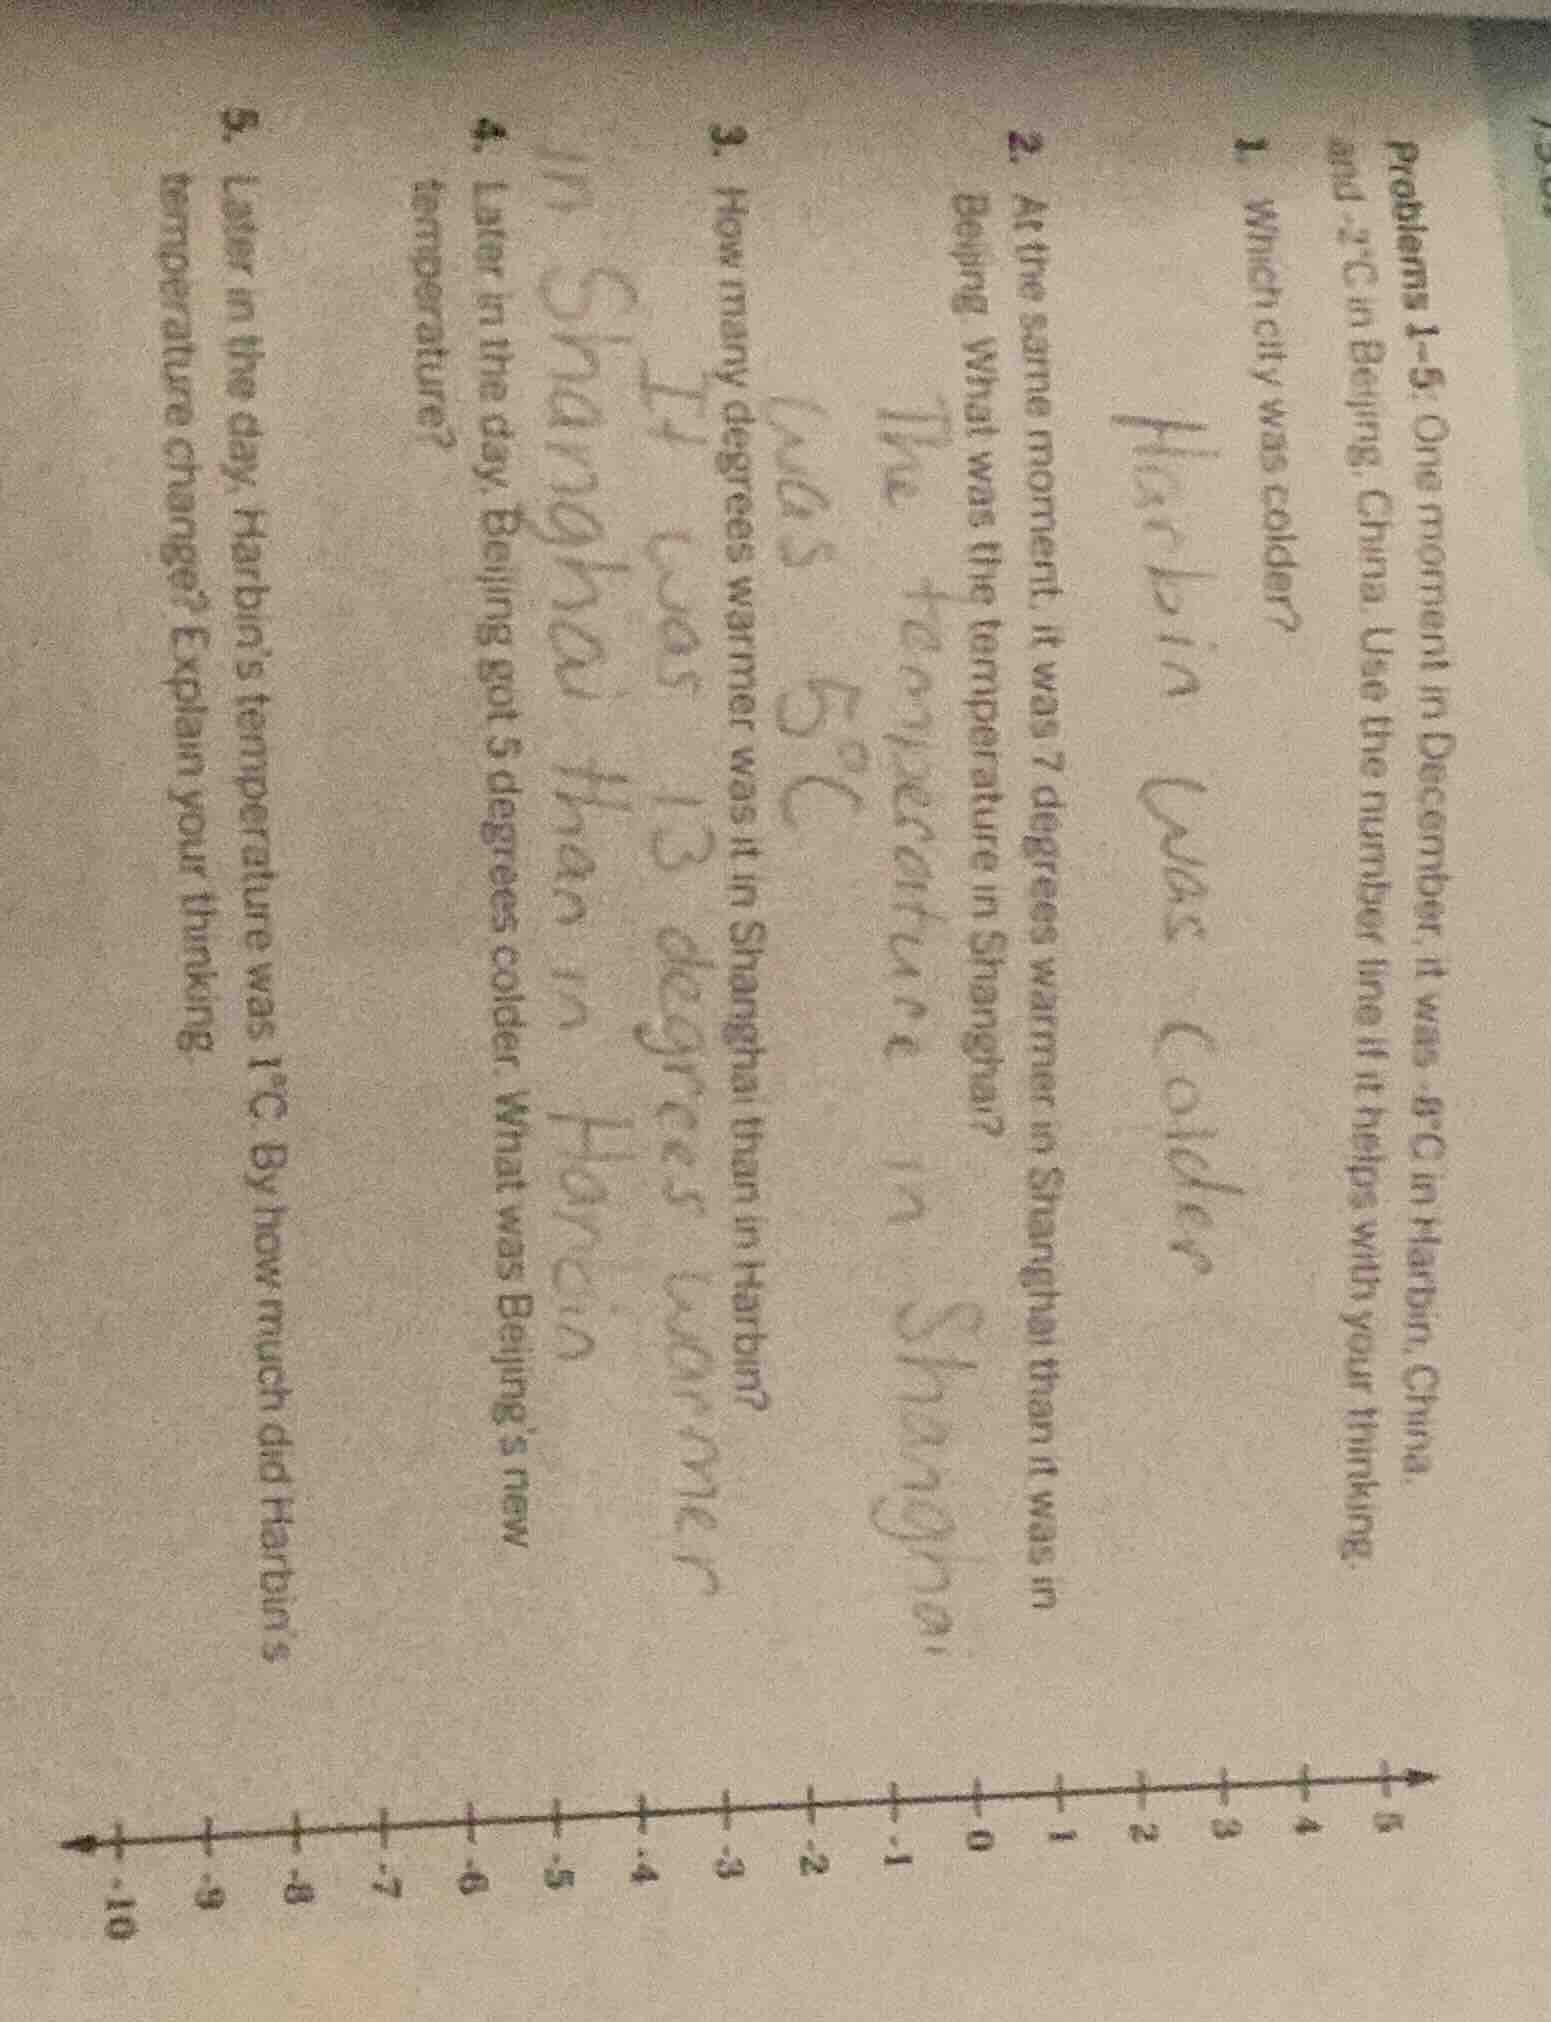 Problems 1–5: One moment in December, it was -8°C in Harbin, China,
and -2°C in Beijing, China. Use the number line if it helps with your thinking.
1. Which city was colder?
Harbin was colder
2. At the same moment, it was 7 degrees warmer in Shanghai than it was in
Beijing. What was the temperature in Shanghai?
The temperature in Shanghai
was 5°C
3. How many degrees warmer was it in Shanghai than in Harbin?
It was 13 degrees warmer
in Shanghai than in Harcin
4. Later in the day, Beijing got 5 degrees colder. What was Beijing's new
temperature?
5. Later in the day, Harbin's temperature was 1°C. By how much did Harbin's
temperature change? Explain your thinking.
5
4
3
2
1
0
-1
-2
-3
-4
-5
-6
-7
-8
-9
-10